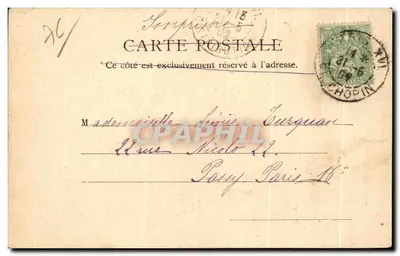 Imprimé
CARTE POSTALE
Ce côté est exclusivement réservé à l'adresse.
CHOPIN
Mademoiselle Turquan
22 rue Nicolo 22
Passy Paris 16e
CPAPHIL.COM